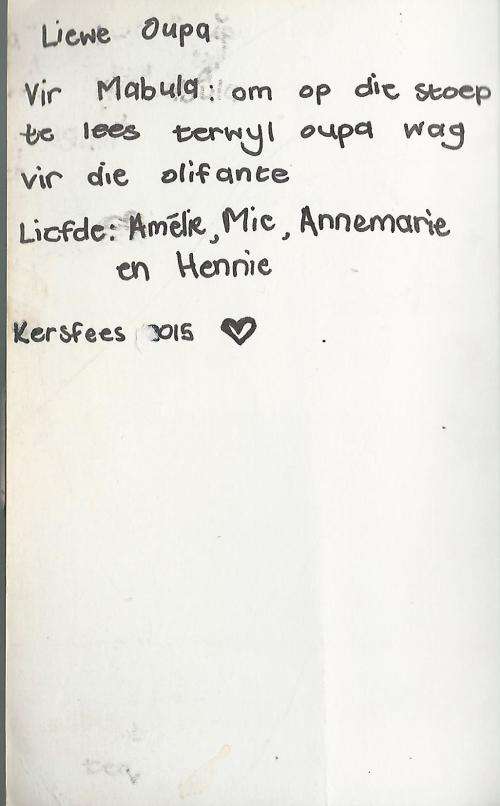 Liewe Oupa
Vir Mabula: om op die stoep
te lees terwyl oupa wag
vir die olifante
Liefde: Amélie, Mie, Annemarie
en Hennie
Kersfees 2015 ♥